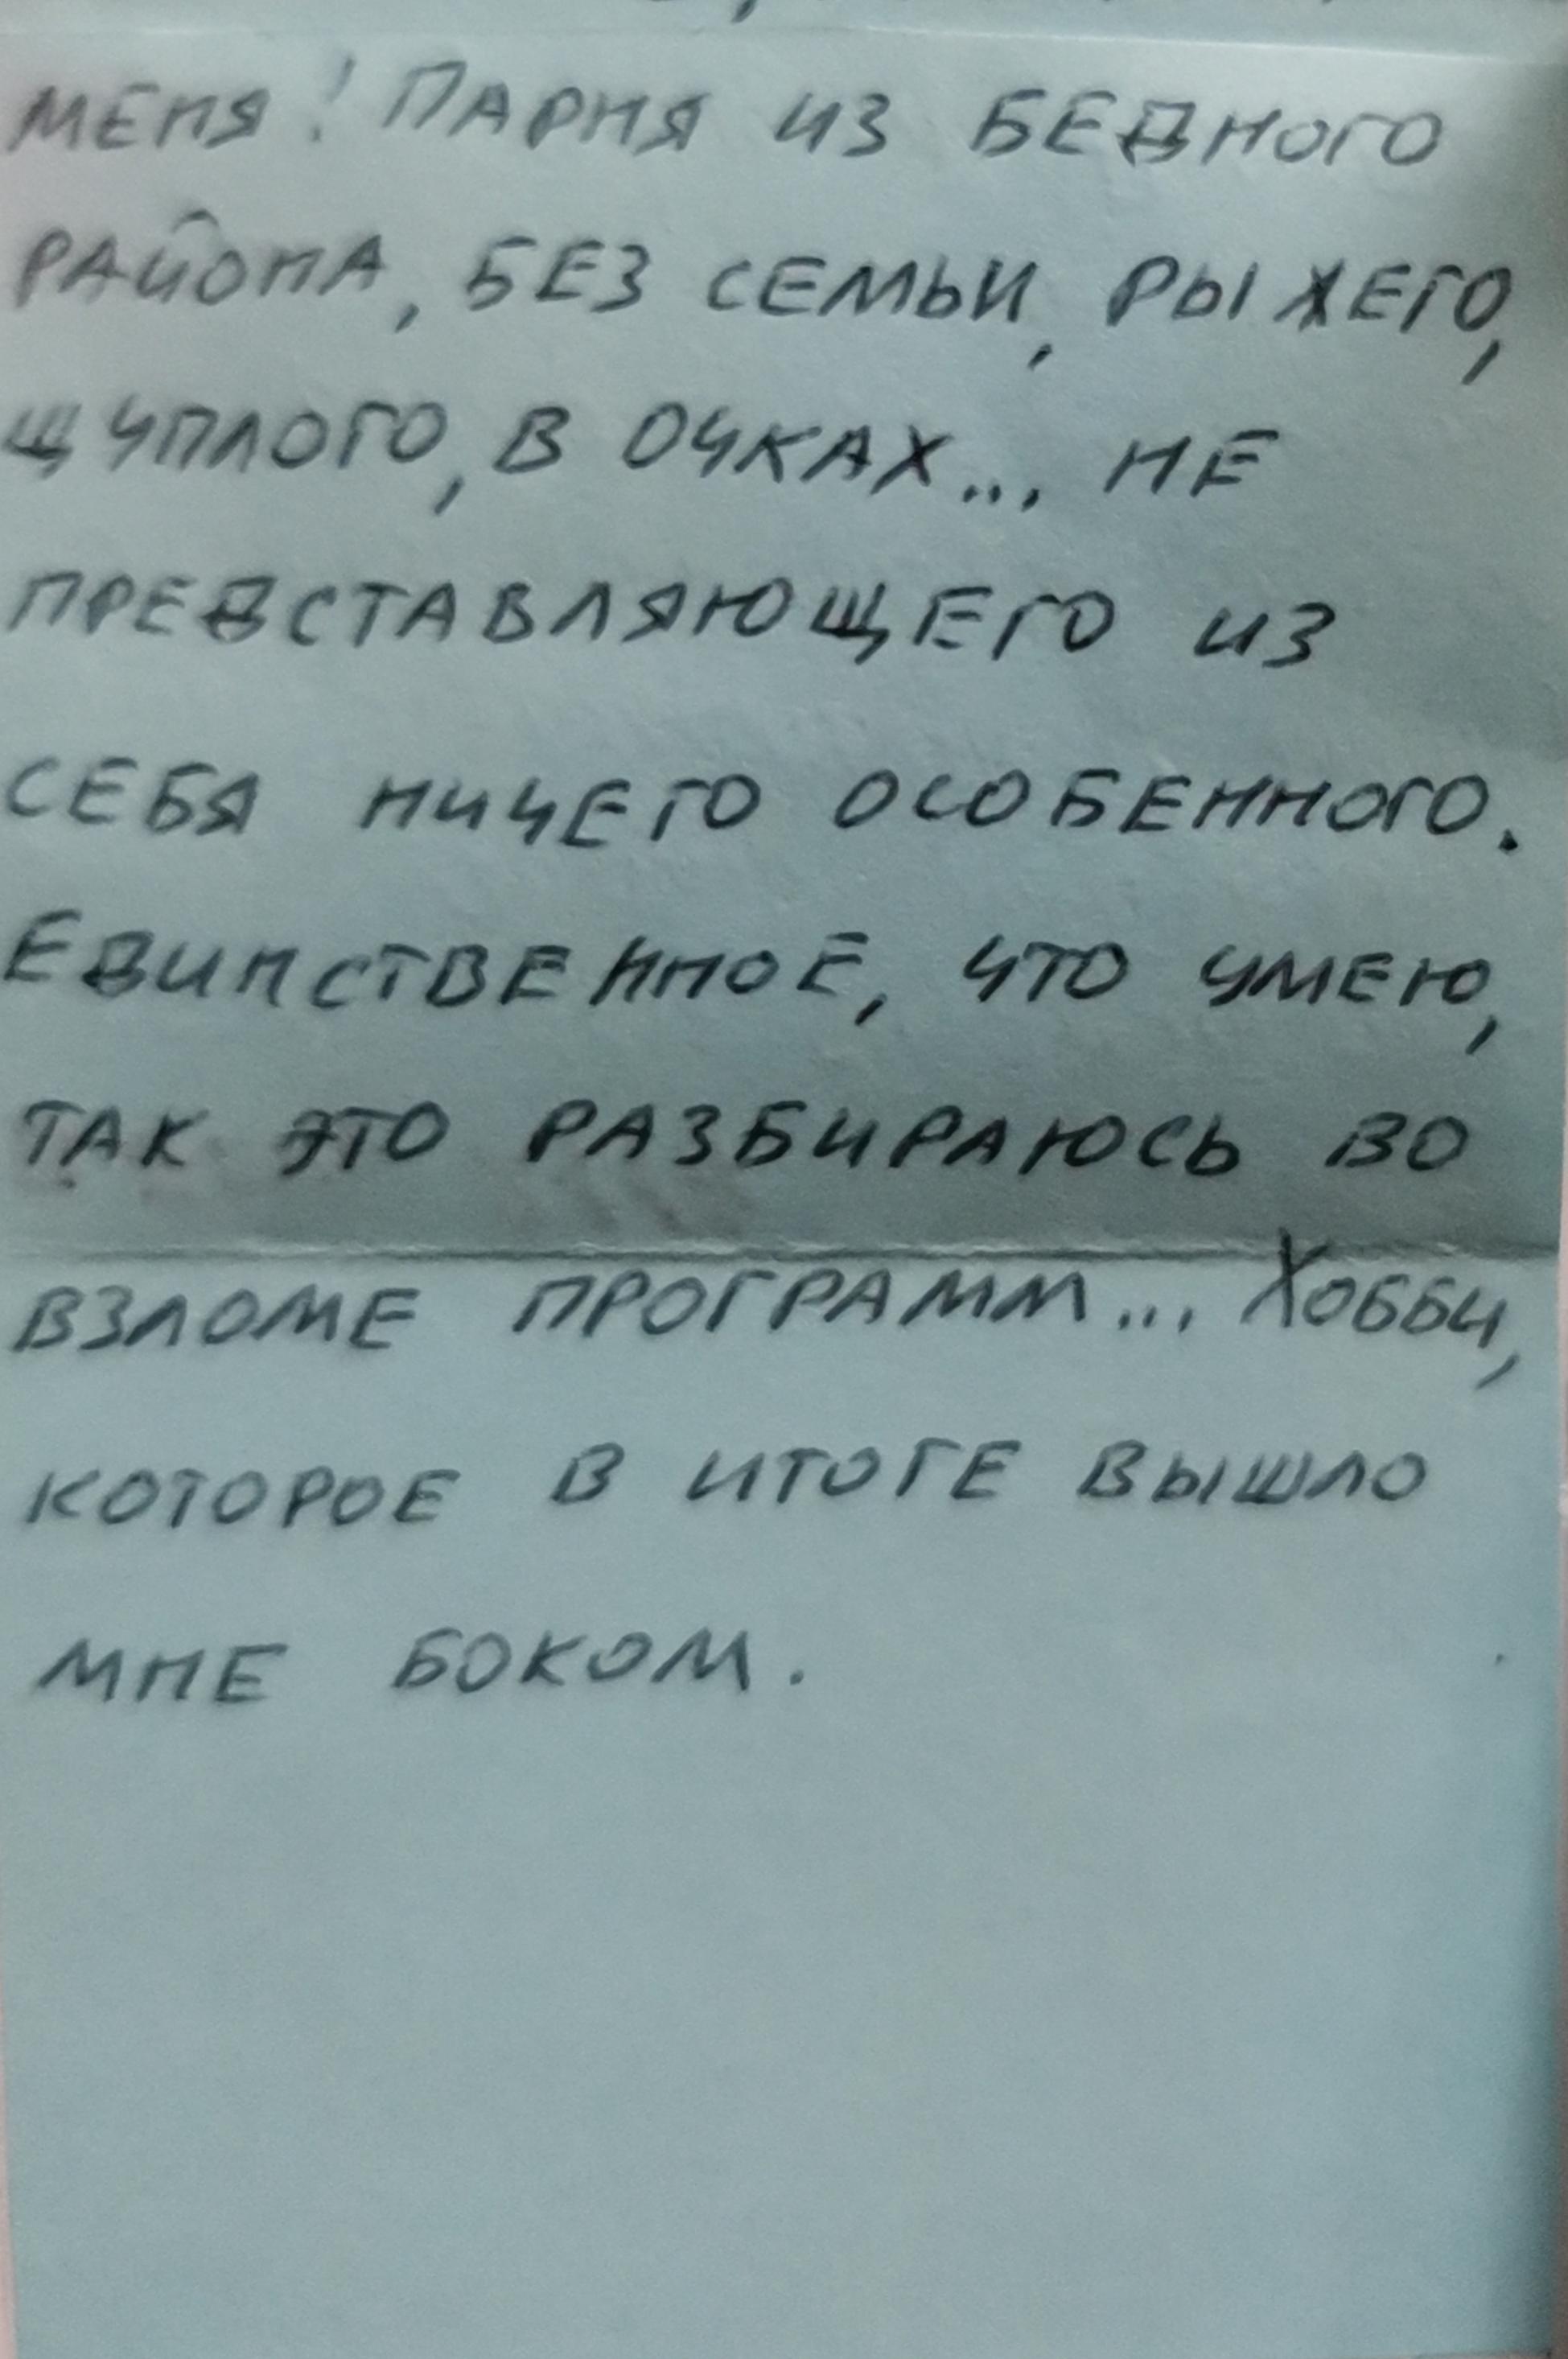 МЕНЯ! ПАРНЯ ИЗ БЕДНОГО
РАЙОНА, БЕЗ СЕМЬИ, РЫЖЕГО,
ЩУПЛОГО, В ОЧКАХ... НЕ
ПРЕДСТАВЛЯЮЩЕГО ИЗ
СЕБЯ НИЧЕГО ОСОБЕННОГО.
ЕДИНСТВЕННОЕ, ЧТО УМЕЮ,
ТАК ЭТО РАЗБИРАЮСЬ ВО
ВЗЛОМЕ ПРОГРАММ... ХОББИ,
КОТОРОЕ В ИТОГЕ ВЫШЛО
МНЕ БОКОМ.